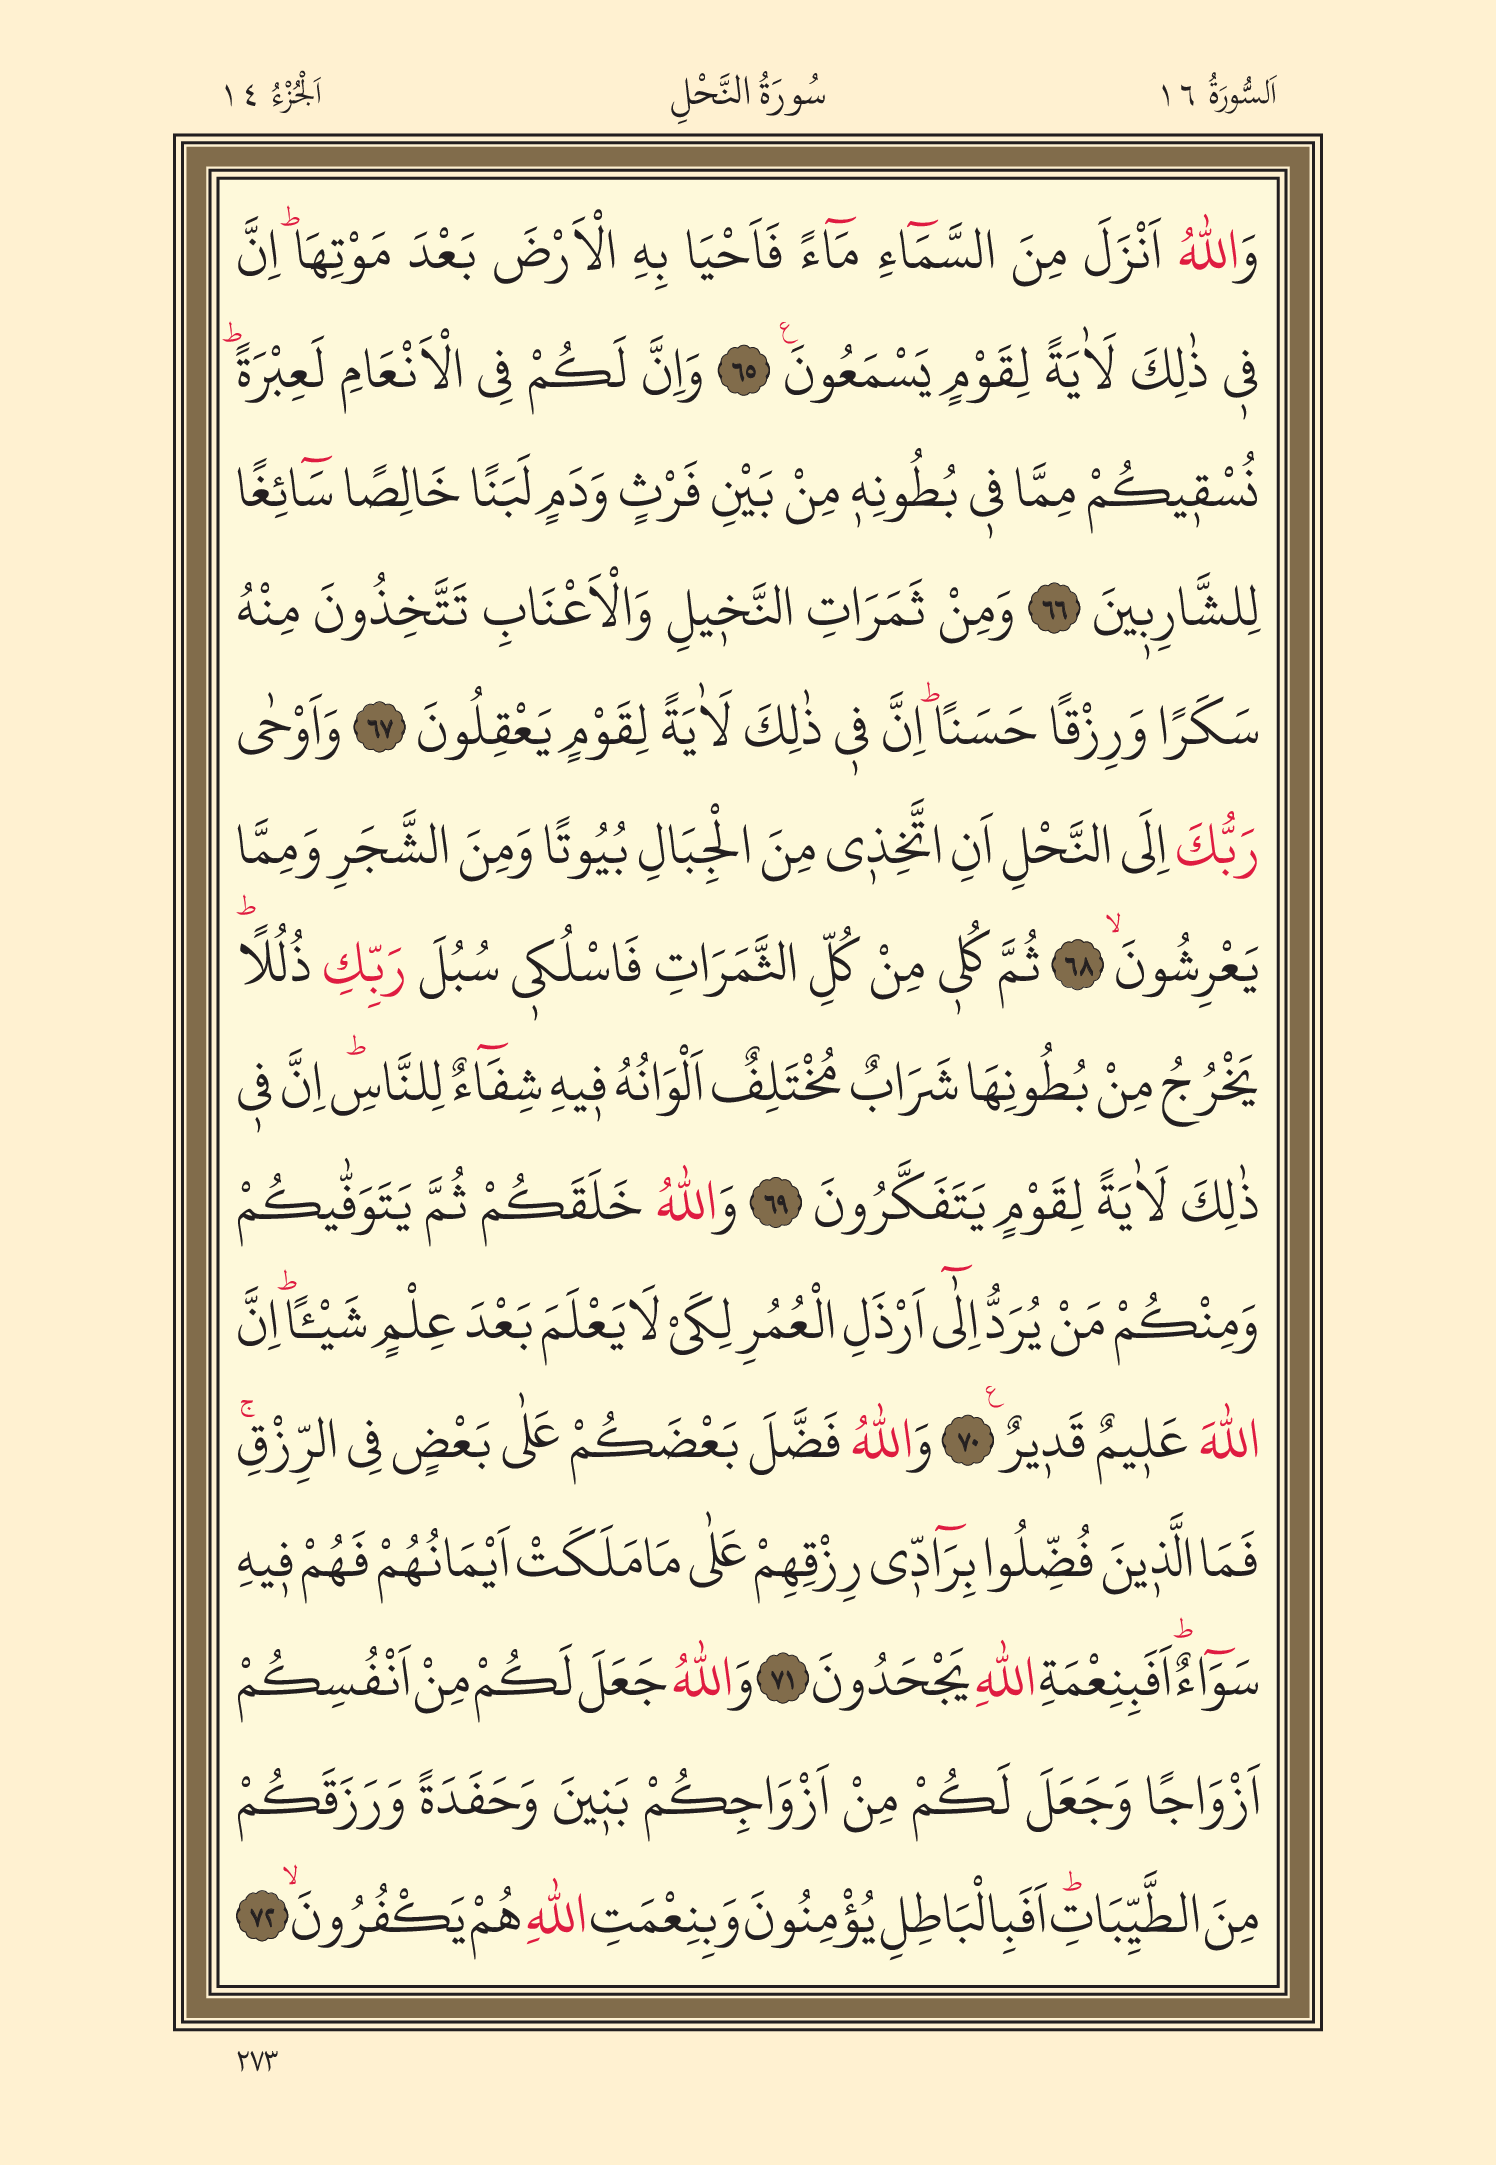 اَلسُّورَةُ ١٦ سُورَةُ النَّحْلِ اَلْجُزْءُ ١٤
وَاللّٰهُ اَنْزَلَ مِنَ السَّمَٓاءِ مَٓاءً فَاَحْيَا بِهِ الْاَرْضَ بَعْدَ مَوْتِهَاۜ اِنَّ
ف۪ي ذٰلِكَ لَاٰيَةً لِقَوْمٍ يَسْمَعُونَ۟ ﴿٦٥﴾ وَاِنَّ لَكُمْ فِي الْاَنْعَامِ لَعِبْرَةًۜ
نُسْق۪يكُمْ مِمَّا ف۪ي بُطُونِه۪ مِنْ بَيْنِ فَرْثٍ وَدَمٍ لَبَنًا خَالِصًا سَٓائِغًا
لِلشَّارِب۪ينَ ﴿٦٦﴾ وَمِنْ ثَمَرَاتِ النَّخ۪يلِ وَالْاَعْنَابِ تَتَّخِذُونَ مِنْهُ
سَكَرًا وَرِزْقًا حَسَنًاۜ اِنَّ ف۪ي ذٰلِكَ لَاٰيَةً لِقَوْمٍ يَعْقِلُونَ ﴿٦٧﴾ وَاَوْحٰى
رَبُّكَ اِلَى النَّحْلِ اَنِ اتَّخِذ۪ي مِنَ الْجِبَالِ بُيُوتًا وَمِنَ الشَّجَرِ وَمِمَّا
يَعْرِشُونَۙ ﴿٦٨﴾ ثُمَّ كُل۪ي مِنْ كُلِّ الثَّمَرَاتِ فَاسْلُك۪ي سُبُلَ رَبِّكِ ذُلُلًاۜ
يَخْرُجُ مِنْ بُطُونِهَا شَرَابٌ مُخْتَلِفٌ اَلْوَانُهُ ف۪يهِ شِفَٓاءٌ لِلنَّاسِۜ اِنَّ ف۪ي
ذٰلِكَ لَاٰيَةً لِقَوْمٍ يَتَفَكَّرُونَ ﴿٦٩﴾ وَاللّٰهُ خَلَقَكُمْ ثُمَّ يَتَوَفّٰيكُمْ
وَمِنْكُمْ مَنْ يُرَدُّ اِلٰٓى اَرْذَلِ الْعُمُرِ لِكَيْ لَا يَعْلَمَ بَعْدَ عِلْمٍ شَيْـًٔاۜ اِنَّ
اللّٰهَ عَل۪يمٌ قَد۪يرٌ۟ ﴿٧٠﴾ وَاللّٰهُ فَضَّلَ بَعْضَكُمْ عَلٰى بَعْضٍ فِي الرِّزْقِۚ
فَمَا الَّذ۪ينَ فُضِّلُوا بِرَٓادّ۪ي رِزْقِهِمْ عَلٰى مَا مَلَكَتْ اَيْمَانُهُمْ فَهُمْ ف۪يهِ
سَوَٓاءٌۜ اَفَبِنِعْمَةِ اللّٰهِ يَجْحَدُونَ ﴿٧١﴾ وَاللّٰهُ جَعَلَ لَكُمْ مِنْ اَنْفُسِكُمْ
اَزْوَاجًا وَجَعَلَ لَكُمْ مِنْ اَزْوَاجِكُمْ بَن۪ينَ وَحَفَدَةً وَرَزَقَكُمْ
مِنَ الطَّيِّبَاتِۜ اَفَبِالْبَاطِلِ يُؤْمِنُونَ وَبِنِعْمَتِ اللّٰهِ هُمْ يَكْفُرُونَۙ ﴿٧٢﴾
٢٧٣